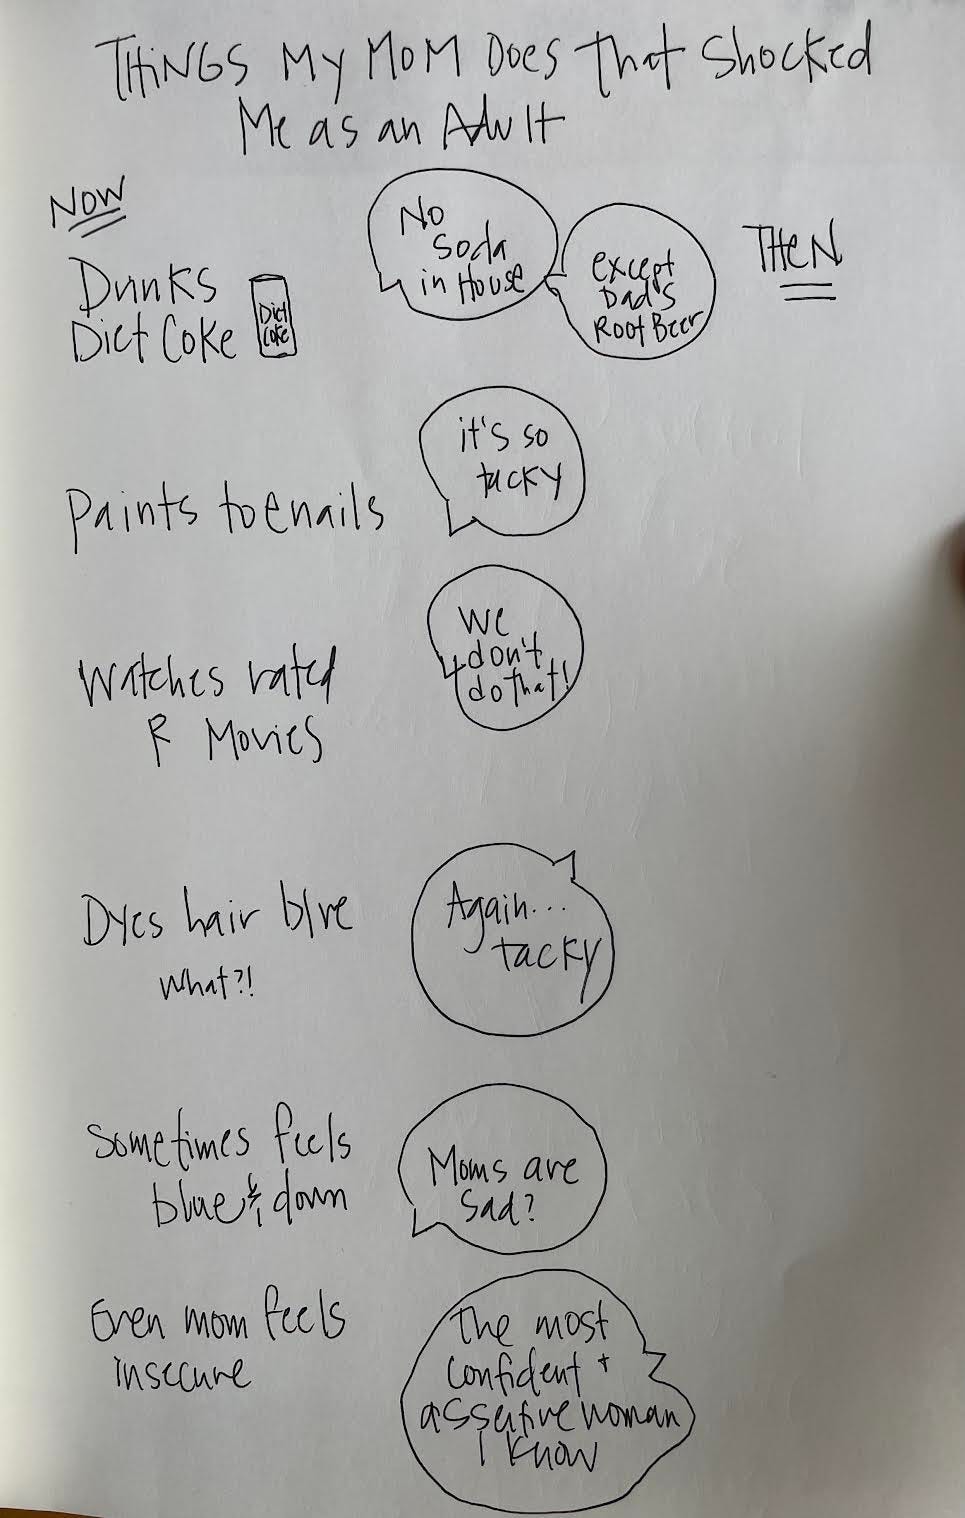 THINGS MY MOM DOES that Shocked
Me as an Adult
NOW
Drinks
Diet Coke
Diet
Coke
No
soda
in House
except
Dad's
Root Beer
THEN
Paints toenails
it's so
tacky
Watches rated
R Movies
We
don't
do that!
Dyes hair blue
What?!
Again...
tacky
Sometimes feels
blue & down
Moms are
sad?
Even mom feels
insecure
The most
confident +
assertive woman
I know